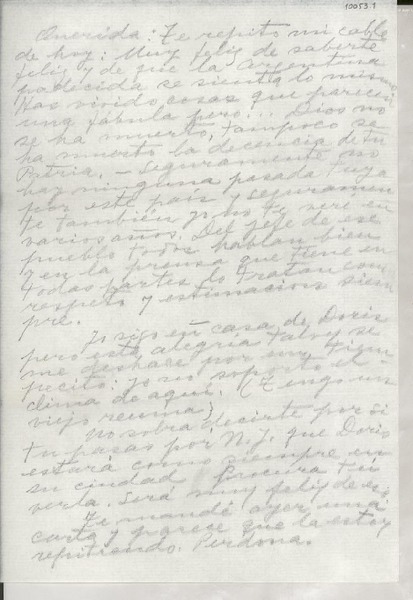 10053.1
Querida: Te repito mi cable
de hoy: Muy feliz de saberte
feliz y de que la Argentina
padecida se sienta lo mismo
Has vivido cosas que parecen
una fábula pero... Dios no
se ha muerto, tampoco se
ha muerto la decencia de tu
Patria. — Seguramente no
hay ninguna pasada tuya
por este país y seguramen
te también yo no te veré en
varios años. Del jefe de ese
pueblo todos hablan bien
y en la prensa que tiene en
todas partes lo tratan con
respeto y estimacion siem
pre.
Yo sigo en casa de Doris
pero esta alegria tal vez se
me deshace por un tiem
pecito: Yo no soporto el
clima de aquí. (Tengo un
viejo reuma)
No sobra decirte por si
tu pasas por N.Y. que Doris
estará como siempre en
su ciudad Procura tu
verla. Será muy feliz de eso
Te mandé ayer una
carta y parece que la estoy
repitiendo. Perdona.